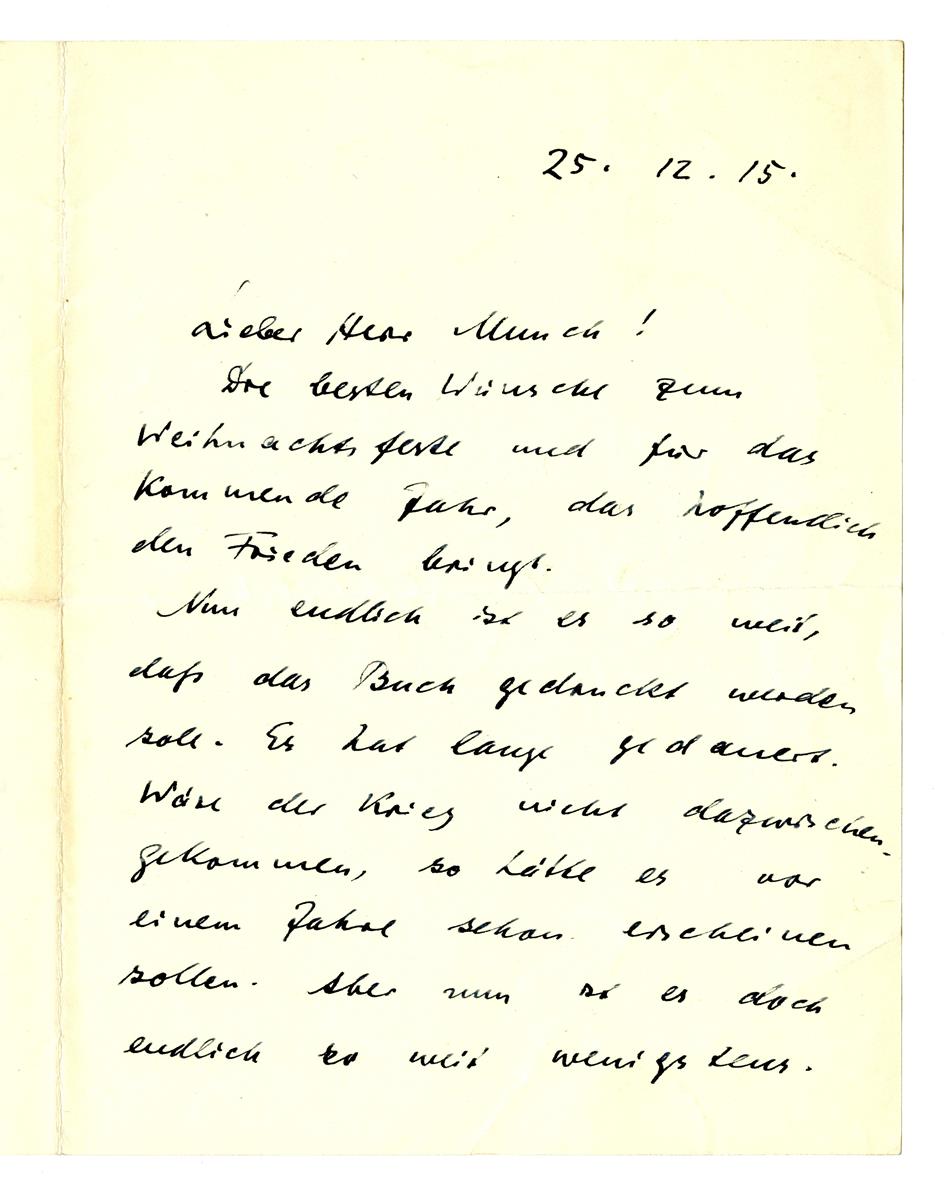 25. 12. 15.
Lieber Herr Munch!
Die besten Wünsche zum
Weihnachtsfeste und für das
Kommende Jahr, das hoffendlich
den Frieden bringt.
Nun endlich ist es so weit,
daß das Buch gedruckt werden
soll. Es hat lange gedauert.
Wäre der Krieg nicht dazwischen-
gekommen, so hätte es vor
einem Jahre schon erscheinen
sollen. Aber nun ist es doch
endlich so weit wenigstens.